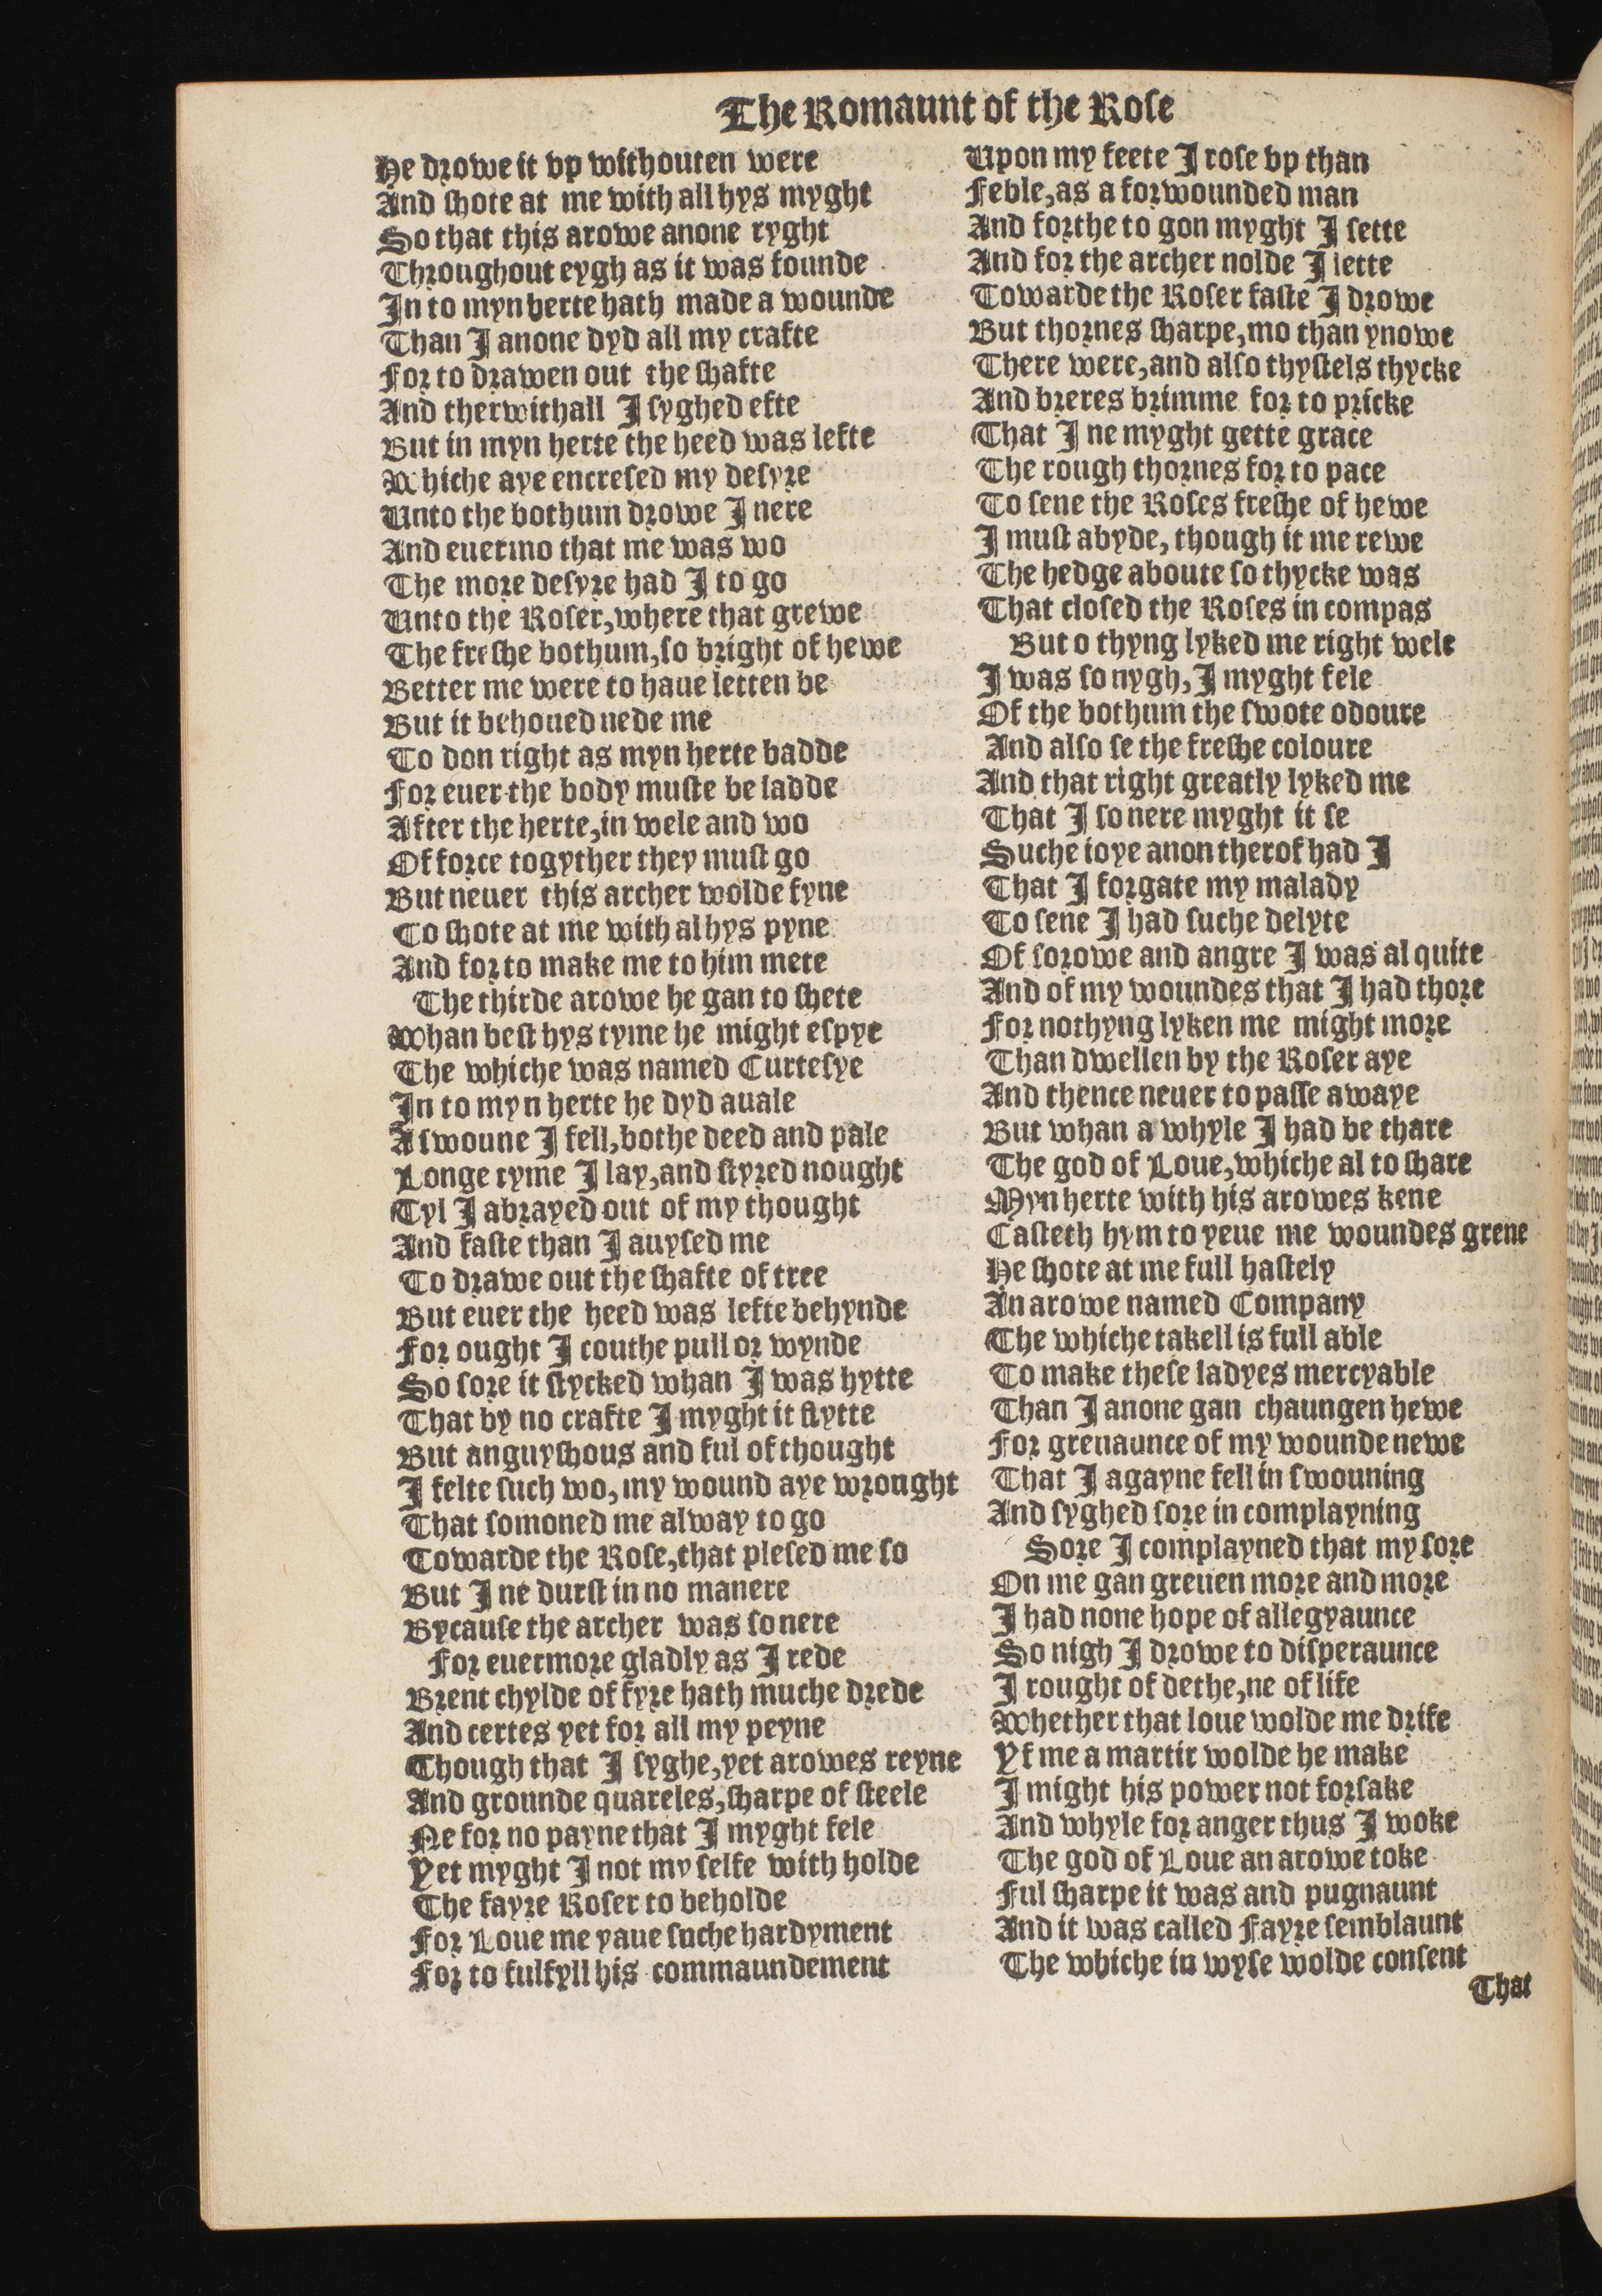 The Romaunt of the Rose
He drowe it vp withouten were
And shote at me with all hys myght
So that this arowe anone ryght
Throughout eygh as it was founde
In to myn herte hath made a wounde
Than I anone dyd all my crafte
For to drawen out the shafte
And therwithall I syghed efte
But in myn herte the heed was lefte
Whiche aye encresed my desyre
Unto the bothum drowe I nere
And euermo that me was wo
The more desyre had I to go
Unto the Roser, where that grewe
The freshe bothum, so bright of hewe
Better me were to haue letten be
But it behoued nede me
To don right as myn herte badde
For euer the body muste be ladde
After the herte, in wele and wo
Of force togyther they must go
But neuer this archer wolde fyne
To shote at me with al hys pyne
And for to make me to him mete
The thirde arowe he gan to shete
Whan best hys tyme he might espye
The whiche was named Curtesye
In to myn herte he dyd auale
A swoune I fell, bothe deed and pale
Longe tyme I lay, and styred nought
Tyl I abrayed out of my thought
And faste than I auysed me
To drawe out the shafte of tree
But euer the heed was lefte behynde
For ought I couthe pull or wynde
So sore it stycked whan I was hytte
That by no crafte I myght it flytte
But anguyshous and ful of thought
I felte such wo, my wound aye wrought
That somoned me alway to go
Towarde the Rose, that plesed me so
But I ne durst in no manere
Bycause the archer was so nere
For euermore gladly as I rede
Brent chylde of fyre hath muche drede
And certes yet for all my peyne
Though that I syghe, yet arowes reyne
And grounde quareles, sharpe of steele
Ne for no payne that I myght fele
Yet myght I not my selfe with holde
The fayre Roser to beholde
For Loue me yaue suche hardyment
For to fulfyll his commaundement
Upon my feete I rose vp than
Feble, as a forwounded man
And forthe to gon myght I sette
And for the archer nolde I lette
Towarde the Roser faste I drowe
But thornes sharpe, mo than ynowe
There were, and also thystels thycke
And breres brimme for to pricke
That I ne myght gette grace
The rough thornes for to pace
To sene the Roses freshe of hewe
I must abyde, though it me rewe
The hedge aboute so thycke was
That closed the Roses in compas
But o thyng lyked me right wele
I was so nygh, I myght fele
Of the bothum the swote odoure
And also se the freshe coloure
And that right greatly lyked me
That I so nere myght it se
Suche ioye anon therof had I
That I forgate my malady
To sene I had suche delyte
Of sorowe and angre I was al quite
And of my woundes that I had thore
For nothyng lyken me might more
Than dwellen by the Roser aye
And thence neuer to passe awaye
But whan a whyle I had be thare
The god of Loue, whiche al to share
Myn herte with his arowes kene
Casteth hym to yeue me woundes grene
He shote at me full hastely
An arowe named Company
The whiche takell is full able
To make these ladyes mercyable
Than I anone gan chaungen hewe
For greuaunce of my wounde newe
That I agayne fell in swouning
And syghed sore in complayning
Sore I complayned that my sore
On me gan greuen more and more
I had none hope of allegyaunce
So nigh I drowe to disperaunce
I rought of dethe, ne of life
Whether that loue wolde me drife
Yf me a martir wolde he make
I might his power not forsake
And whyle for anger thus I woke
The god of Loue an arowe toke
Ful sharpe it was and pugnaunt
And it was called Fayre semblaunt
The whiche in wyse wolde consent
That